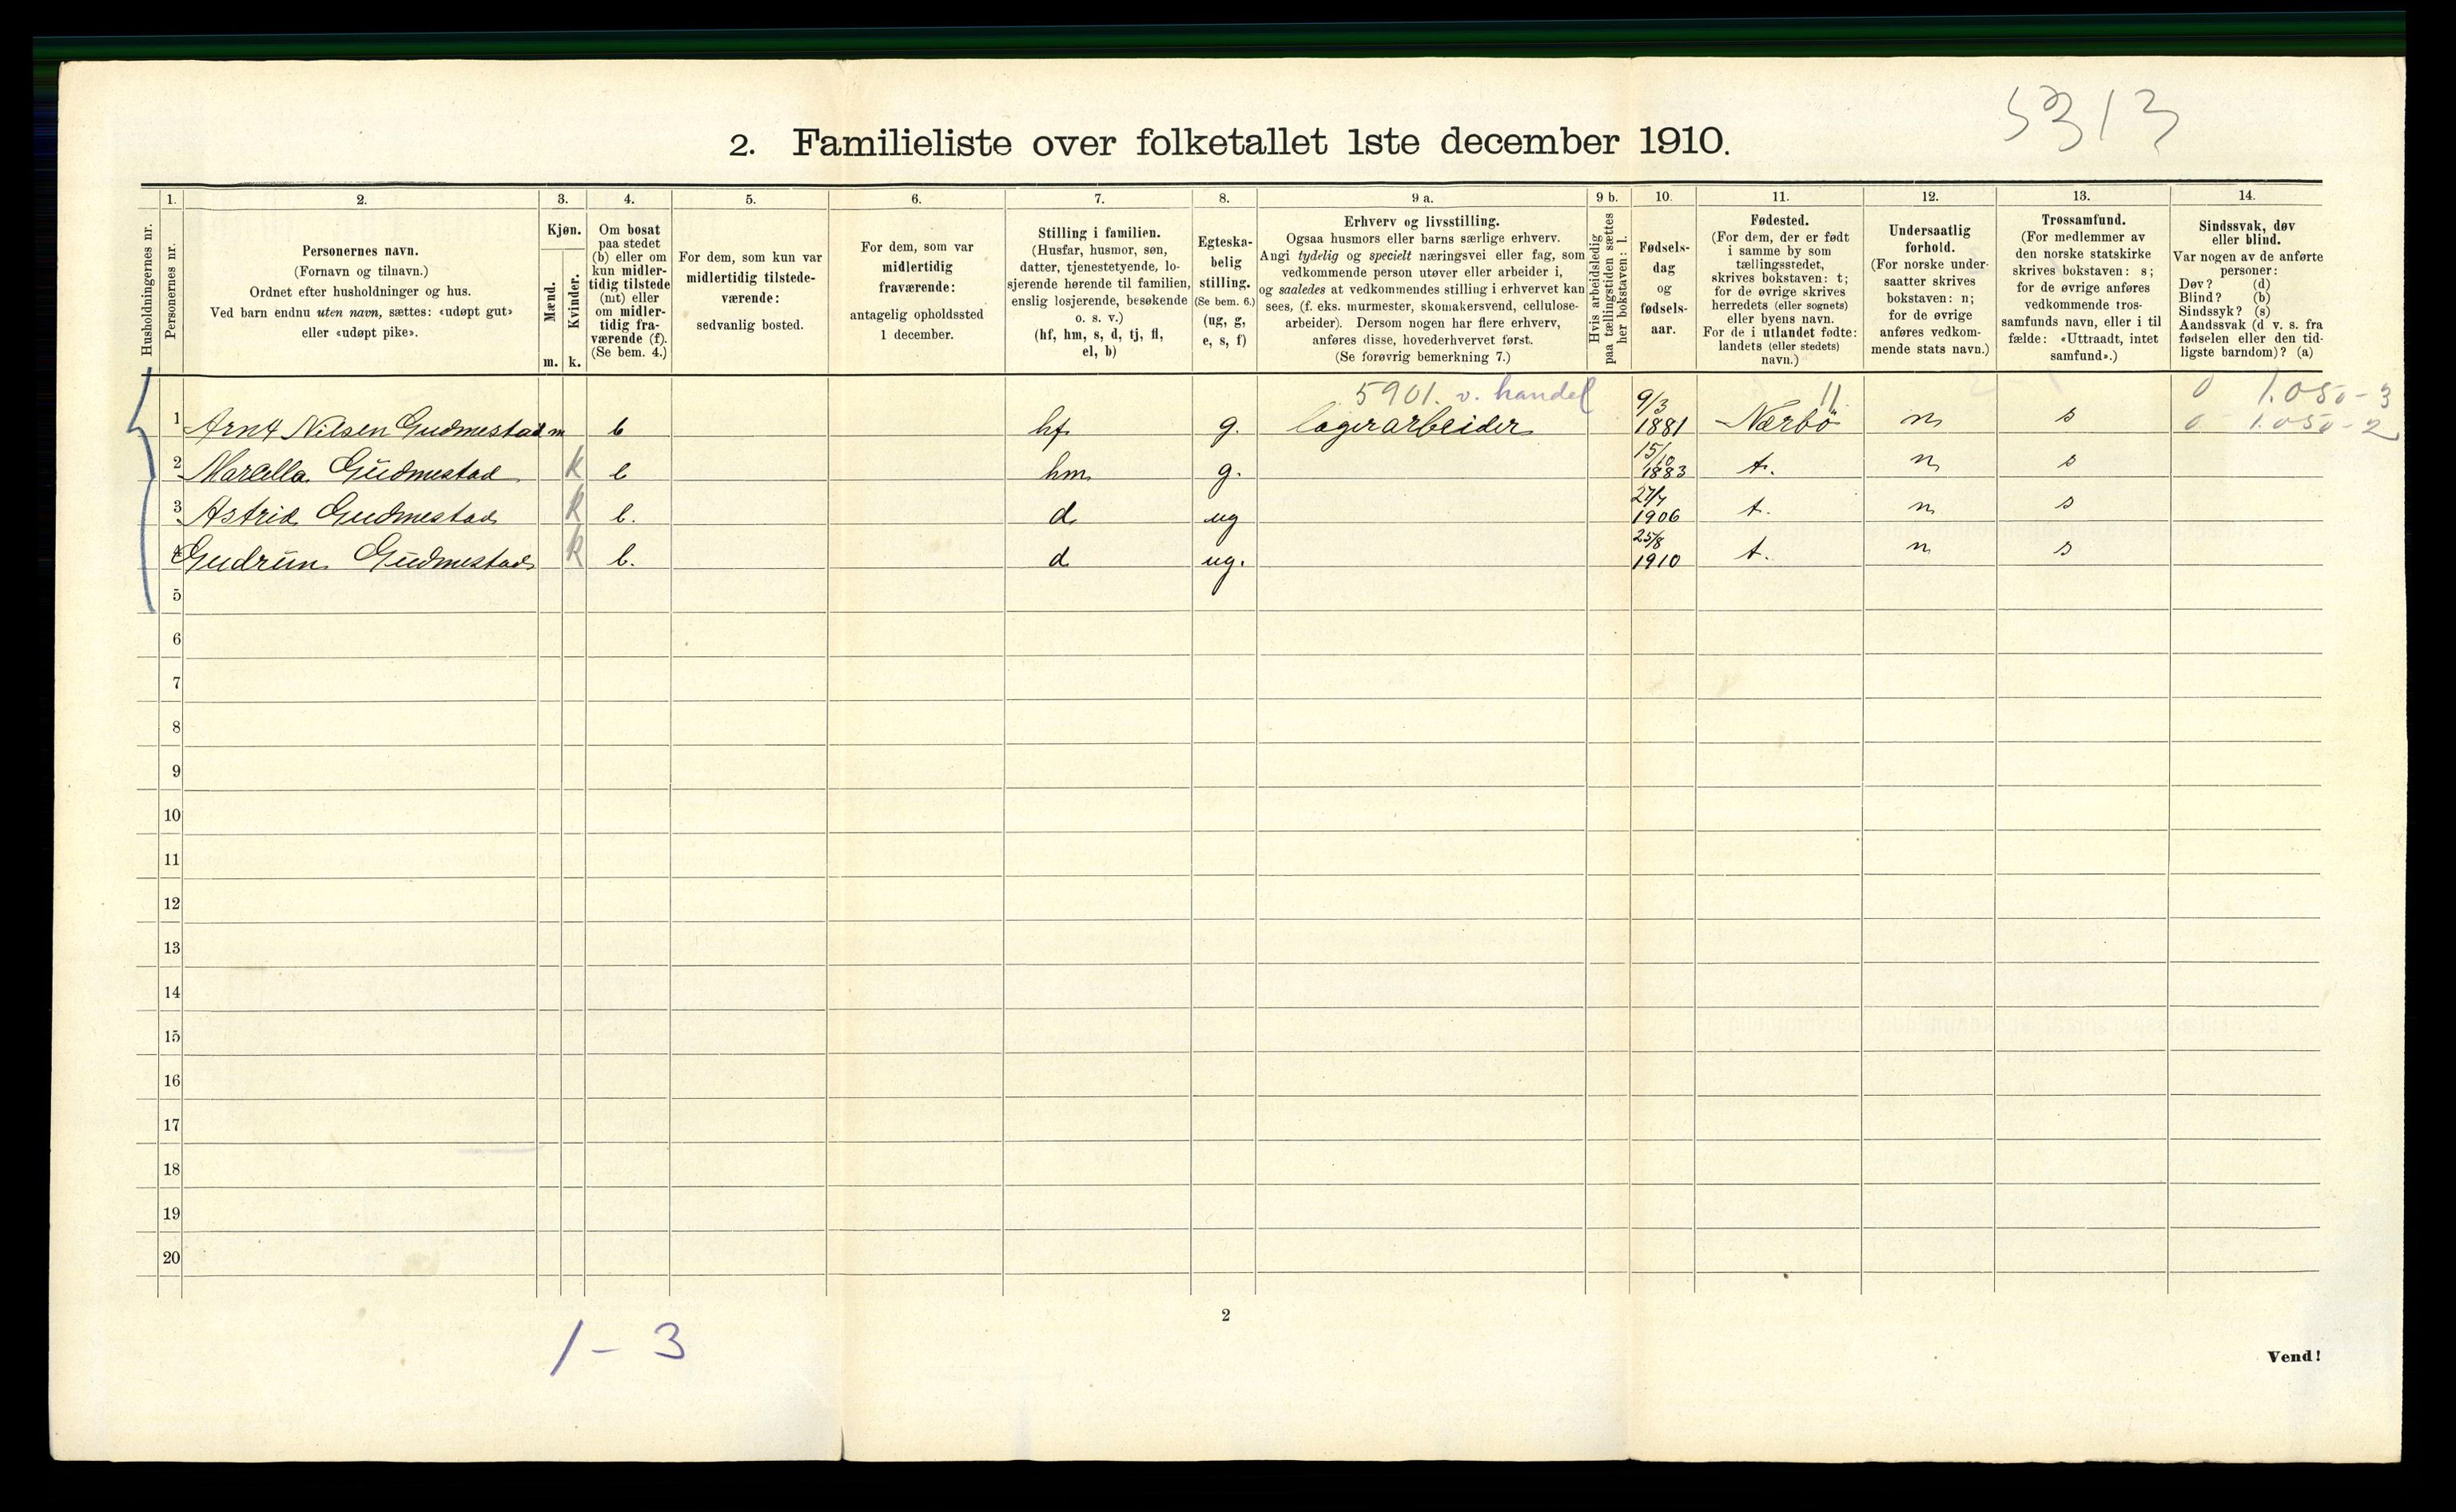 5313
2. Familieliste over folketallet 1ste december 1910.
Husholdningernes nr.
1.
Personernes nr.
2.
Personernes navn.
(Fornavn og tilnavn.)
Ordnet efter husholdninger og hus.
Ved barn endnu uten navn, sættes: «udøpt gut»
eller «udøpt pike».
3.
Kjøn.
Mænd.
Kvinder.
m. k.
4.
Om bosat
paa stedet
(b) eller om
kun midler-
tidig tilstede
(mt) eller
om midler-
tidig fra-
værende (f).
(Se bem. 4.)
5.
For dem, som kun var
midlertidig tilstede-
værende:
sedvanlig bosted.
6.
For dem, som var
midlertidig
fraværende:
antagelig opholdssted
1 december.
7.
Stilling i familien.
(Husfar, husmor, søn,
datter, tjenestetyende, lo-
sjerende hørende til familien,
enslig losjerende, besøkende
o. s. v.)
(hf, hm, s, d, tj, fl,
el, b)
8.
Egteska-
belig
stilling.
(Se bem. 6.)
(ug, g,
e, s, f)
9 a.
Erhverv og livsstilling.
Ogsaa husmors eller barns særlige erhverv.
Angi tydelig og specielt næringsvei eller fag, som
vedkommende person utøver eller arbeider i,
og saaledes at vedkommendes stilling i erhvervet kan
sees, (f. eks. murmester, skomakersvend, cellulose-
arbeider). Dersom nogen har flere erhverv,
anføres disse, hovederhvervet først.
(Se forøvrig bemerkning 7.)
9 b.
Hvis arbeidsledig
paa tællingstiden sættes
her bokstaven: l.
10.
Fødsels-
dag
og
fødsels-
aar.
11.
Fødested.
(For dem, der er født
i samme by som
tællingsstedet,
skrives bokstaven: t;
for de øvrige skrives
herredets (eller sognets)
eller byens navn.
For de i utlandet fødte:
landets (eller stedets)
navn.)
12.
Undersaatlig
forhold.
(For norske under-
saatter skrives
bokstaven: n;
for de øvrige
anføres vedkom-
mende stats navn.)
13.
Trossamfund.
(For medlemmer av
den norske statskirke
skrives bokstaven: s;
for de øvrige anføres
vedkommende tros-
samfunds navn, eller i til
fælde: «Uttraadt, intet
samfund».)
14.
Sindssvak, døv
eller blind.
Var nogen av de anførte
personer:
Døv? (d)
Blind? (b)
Sindssyk? (s)
Aandssvak (d v. s. fra
fødselen eller den tid-
ligste barndom)? (a)
5901. v. handel 9/3 11 0 1.050-3
1 Arnt Nilsen Gudmestad m b hf g. lagerarbeider 1881 Nærbö n s 0 1.050-2
15/10
2 Marcella Gudmestad k b hm g. 1883 t. n s
27/7
3 Astrid Gudmestad k b. d ug 1906 t. n s
25/8
4 Gudrun Gudmestad k b. d ug. 1910 t. n s
5
6
7
8
9
10
11
12
13
14
15
16
17
18
19
20
2
1 - 3
Vend!